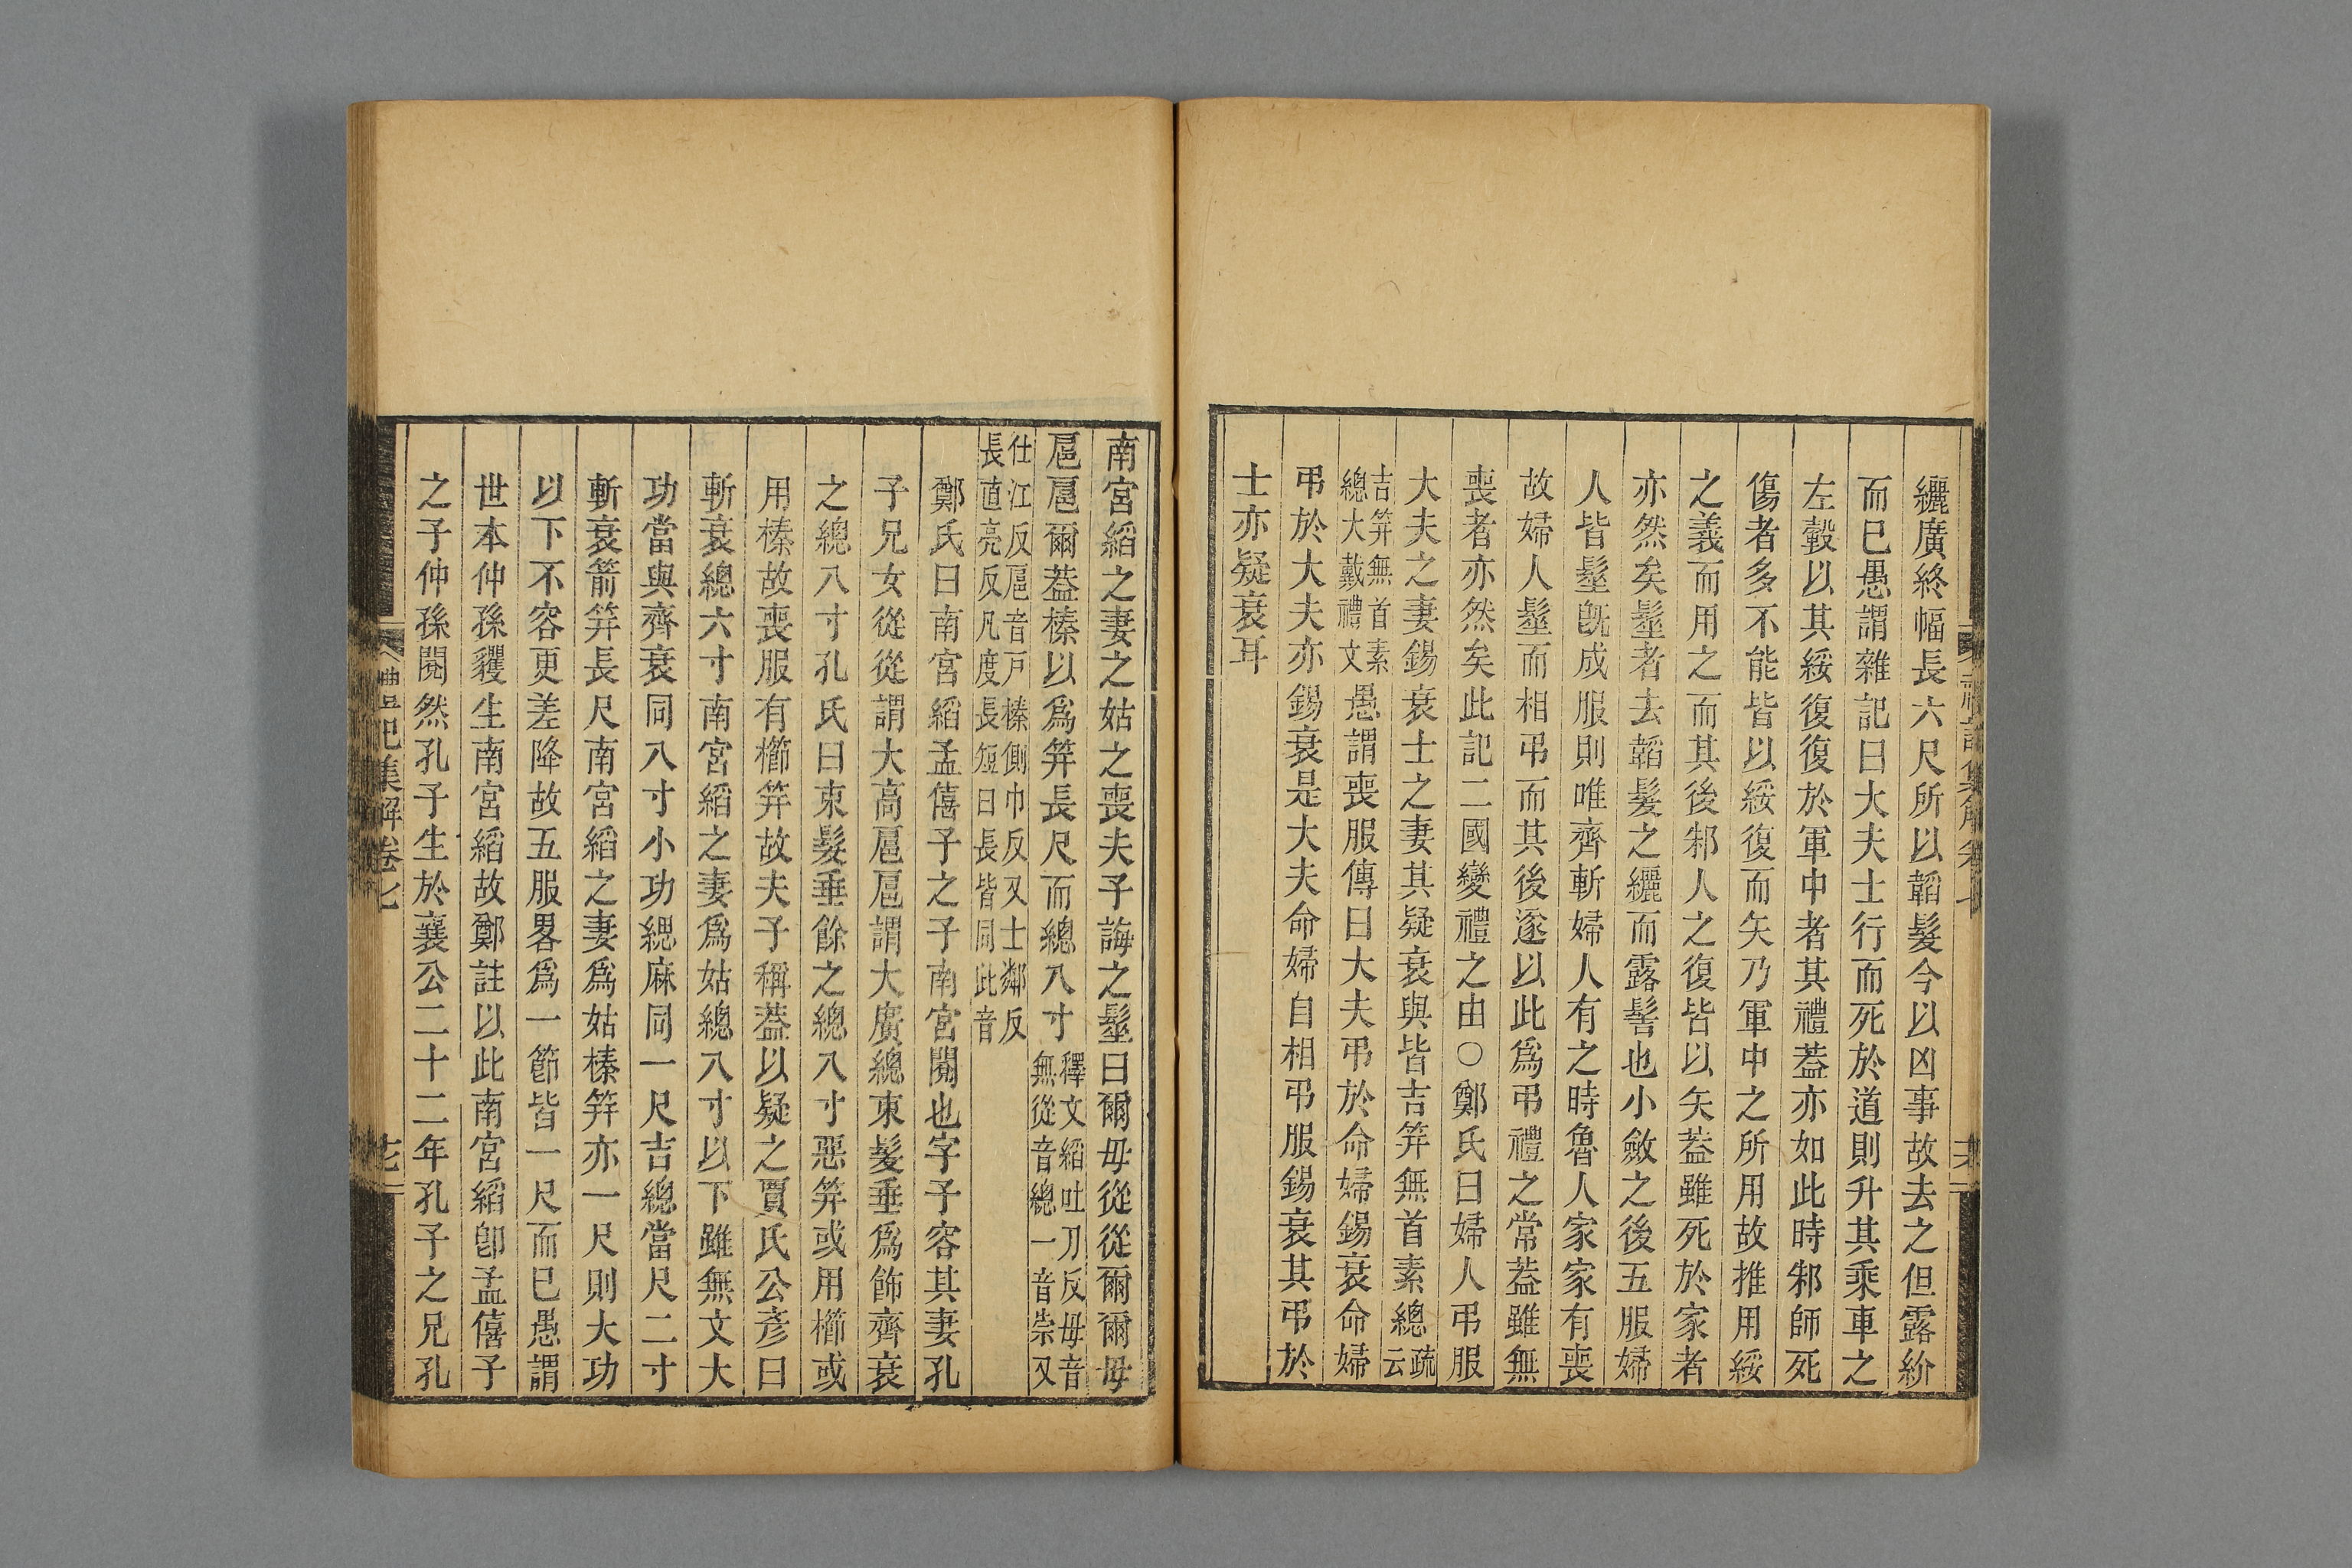 纚廣終幅長六尺所以韜髮今以凶事故去之但露紒
而已愚謂雜記曰大夫士行而死於道則升其乘車之
左轂以其綏復復於軍中者其禮葢亦如此時邾師死
傷者多不能皆以綏復而矢乃軍中之所用故推用綏
之義而用之而其後邾人之復皆以矢葢雖死於家者
亦然矣髽者去韜髮之纚而露髻也小斂之後五服婦
人皆髽旣成服則唯齊斬婦人有之時魯人家家有喪
故婦人髽而相弔而其後遂以此爲弔禮之常葢雖無
喪者亦然矣此記二國變禮之由○鄭氏曰婦人弔服
大夫之妻錫衰士之妻其疑衰與皆吉笄無首素總疏云
吉笄無首素總大戴禮文愚謂喪服傳曰大夫弔於命婦錫衰命婦
弔於大夫亦錫衰是大夫命婦自相弔服錫衰其弔於
士亦疑衰耳
南宮縚之妻之姑之喪夫子誨之髽曰爾毋從從爾爾毋
扈扈爾葢榛以爲笄長尺而總八寸釋文縚吐刀反毋音無從音總一音崇又
仕江反扈音戸榛側巾反又士鄰反長直亮反凡度長短曰長皆同此音
鄭氏曰南宮縚孟僖子之子南宮閱也字子容其妻孔
子兄女從從謂大高扈扈謂大廣總束髮垂爲飾齊衰
之總八寸孔氏曰束髮垂餘之總八寸惡笄或用櫛或
用榛故喪服有櫛笄故夫子稱葢以疑之賈氏公彥曰
斬衰總六寸南宮縚之妻爲姑總八寸以下雖無文大
功當與齊衰同八寸小功緦麻同一尺吉總當尺二寸
斬衰箭笄長尺南宮縚之妻爲姑榛笄亦一尺則大功
以下不容更差降故五服畧爲一節皆一尺而已愚謂
世本仲孫貜生南宮縚故鄭註以此南宮縚卽孟僖子
之子仲孫閱然孔子生於襄公二十二年孔子之兄孔
禮記集解卷七